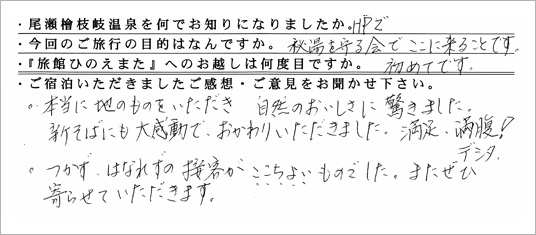 ・尾瀬檜枝岐温泉を何でお知りになりましたか。HPで
・今回のご旅行の目的はなんですか。 秘湯を守る会でここに来ることです。
・『旅館ひのえまた』へのお越しは何度目ですか。 初めてです。
・ご宿泊いただきましたご感想・ご意見をお聞かせ下さい。
○ 本当に地のものをいただき 自然のおいしさに驚きました。
新そばにも大感動で、おかわりいただきました。満足、満腹!
デシタ.
○ つかず、はなれずの接客がここちよいものでした。またぜひ
寄らせていただきます。